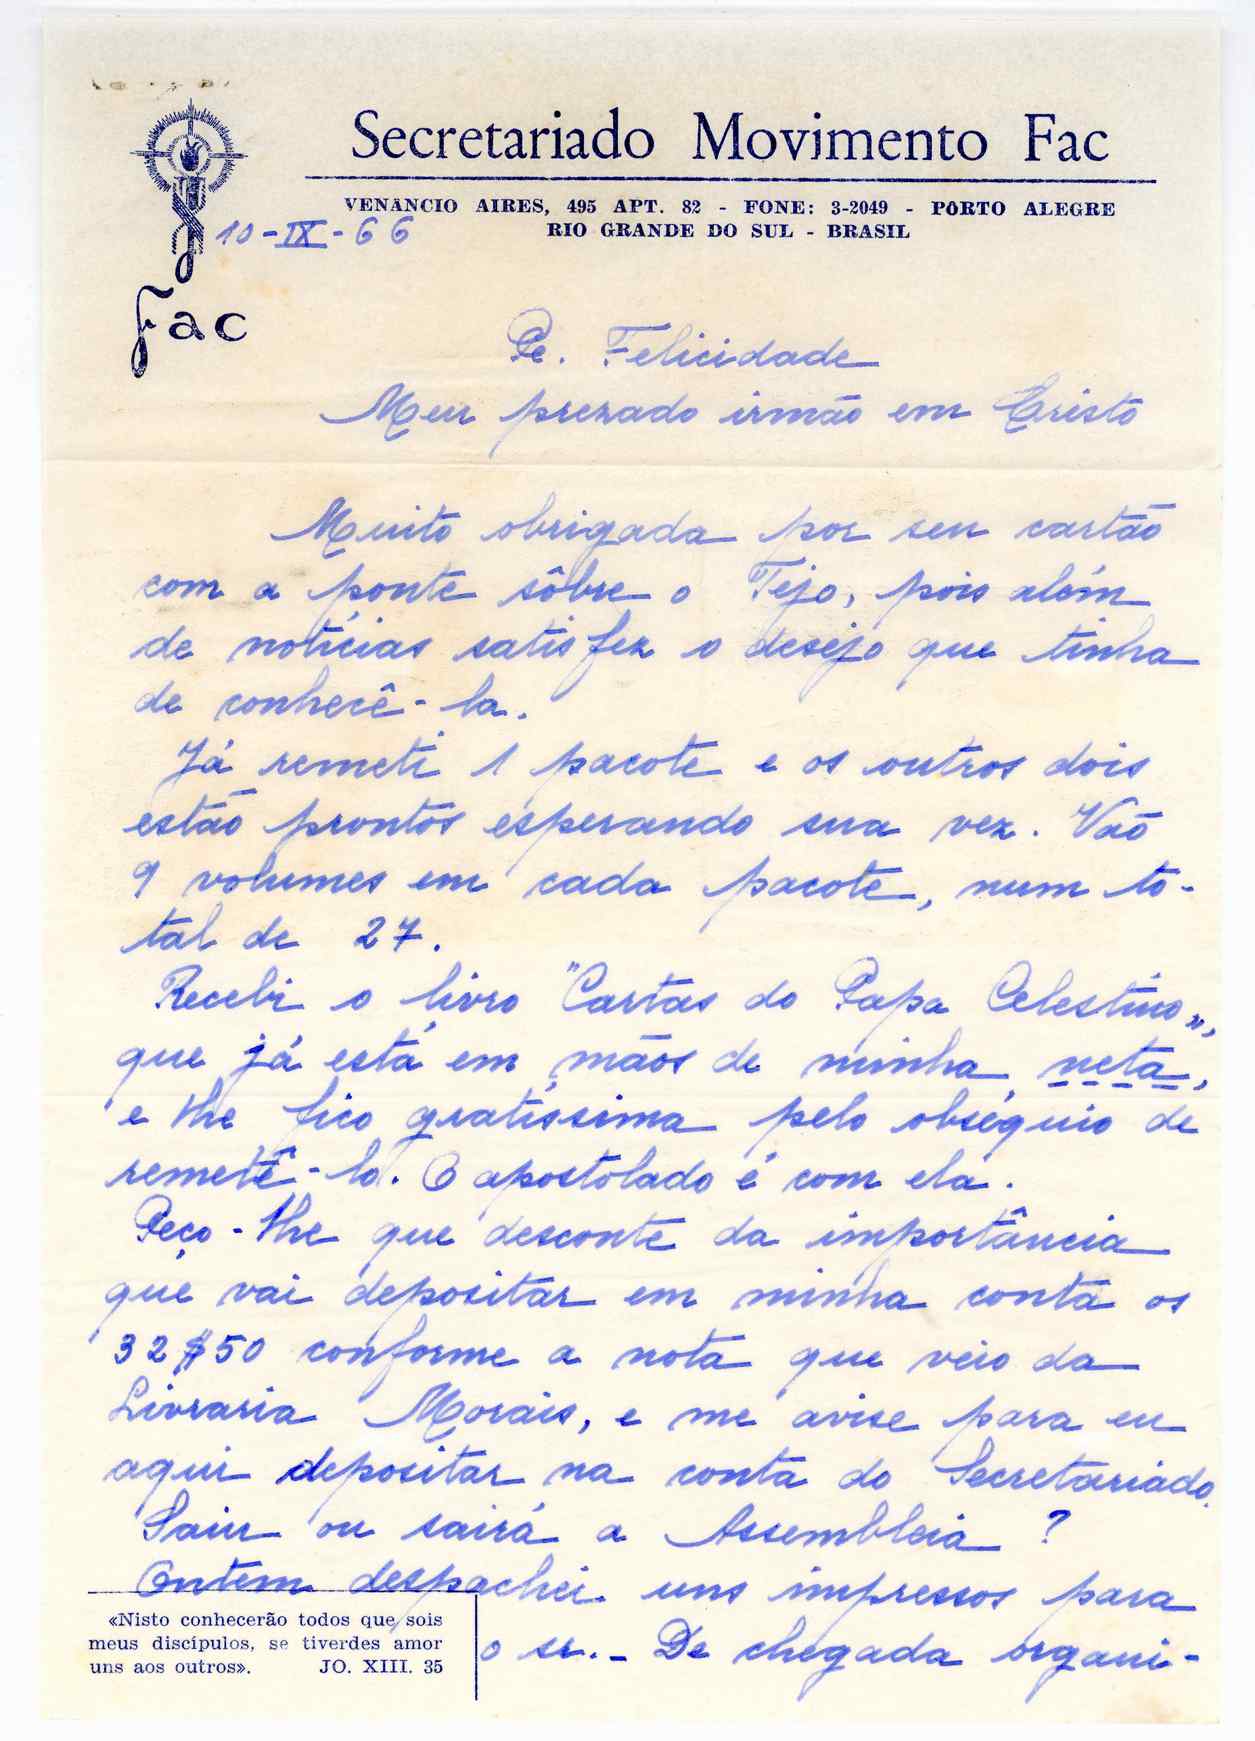 Secretariado Movimento Fac
VENÂNCIO AIRES, 495 APT. 82 - FONE: 3-2049 - PORTO ALEGRE
RIO GRANDE DO SUL - BRASIL
10-IX-66
Fac
Pe. Felicidade
Meu prezado irmão em Cristo
Muito obrigada por seu cartão
com a ponte sôbre o Tejo, pois além
de notícias satisfez o desejo que tinha
de conhecê-la.
Já remeti 1 pacote e os outros dois
estão prontos esperando sua vez. Vão
9 volumes em cada pacote, num to-
tal de 27.
Recebi o livro "Cartas do Papa Celestino",
que já está em mãos de minha neta,
e lhe fico gratíssima pelo obséquio de
remetê-lo. O apostolado é com ela.
Peço-lhe que desconte da importância
que vai depositar em minha conta os
32$50 conforme a nota que veio da
Livraria Morais, e me avise para eu
aqui depositar na conta do Secretariado.
Saiu ou sairá a Assembleia ?
Ontem despachei uns impressos para
o sr. - De chegada organi-
«Nisto conhecerão todos que sois
meus discípulos, se tiverdes amor
uns aos outros». JO. XIII. 35